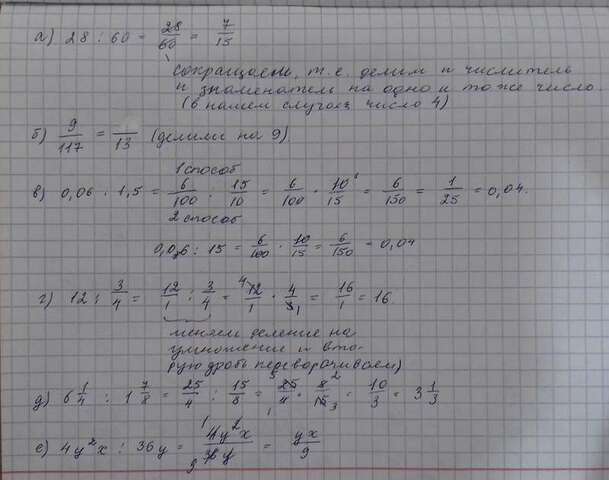 а) 28 : 60 = 28/60 = 7/15
сокращаем, т.е. делим и числитель
и знаменатель на одно и то же число.
(в нашем случае число 4)
б) 9/117 = /13 (делили на 9).
1 способ
в) 0,06 : 1,5 = 6/100 : 15/10 = 6/100 · 10/15 = 6/150 = 1/25 = 0,04.
2 способ
0,0,6 : 15 = 6/100 · 10/15 = 6/150 = 0,04
г) 12 : 3/4 = 12/1 : 3/4 = 12/1 · 4/3 = 16/1 = 16.
меняем деление на
умножение и вто-
рую дробь переворачиваем)
д) 6 1/4 : 1 7/8 = 25/4 : 15/8 = 25/4 · 8/15 = 10/3 = 3 1/3
е) 4y²x : 36y = 4y²x/36y = yx/9